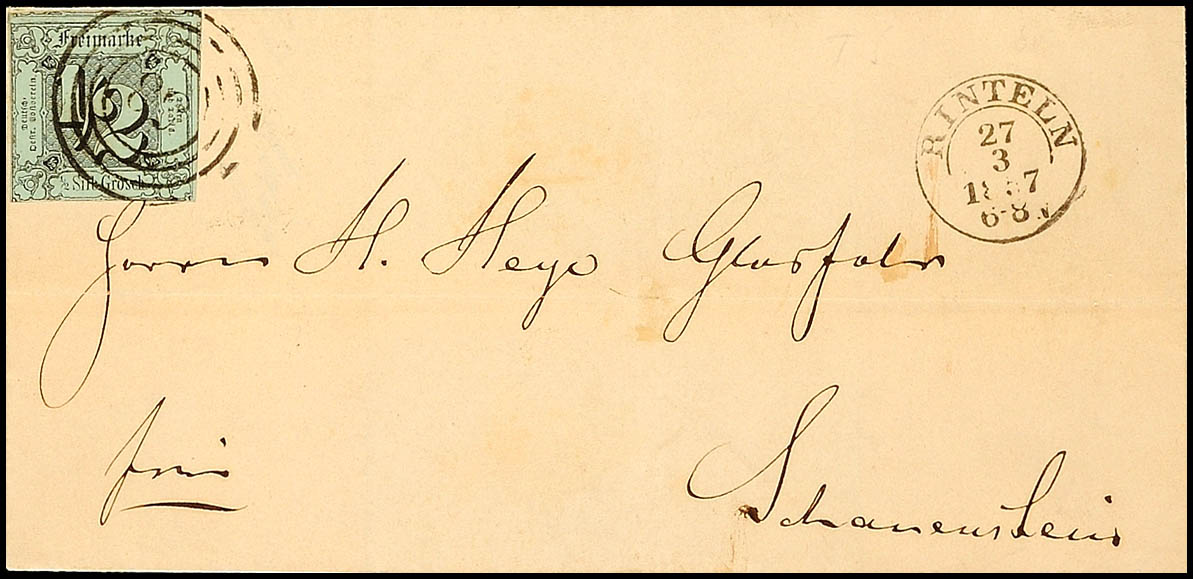 Freimärke
1/2
Deutsch-
Oestr. Postverein.
½ Silb. Grosch.
RINTELN
27
3
1857
6-8 N
Herrn H. Heye Glasfabr
frei
Schauenstein